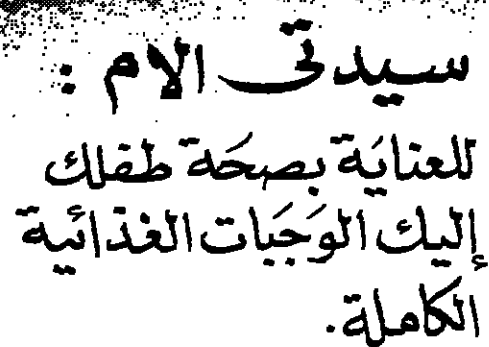 سيدتى الام :
للعنايَة بصحَة طفلك
إليك الوَجَبات الغذائية
الكاملة.